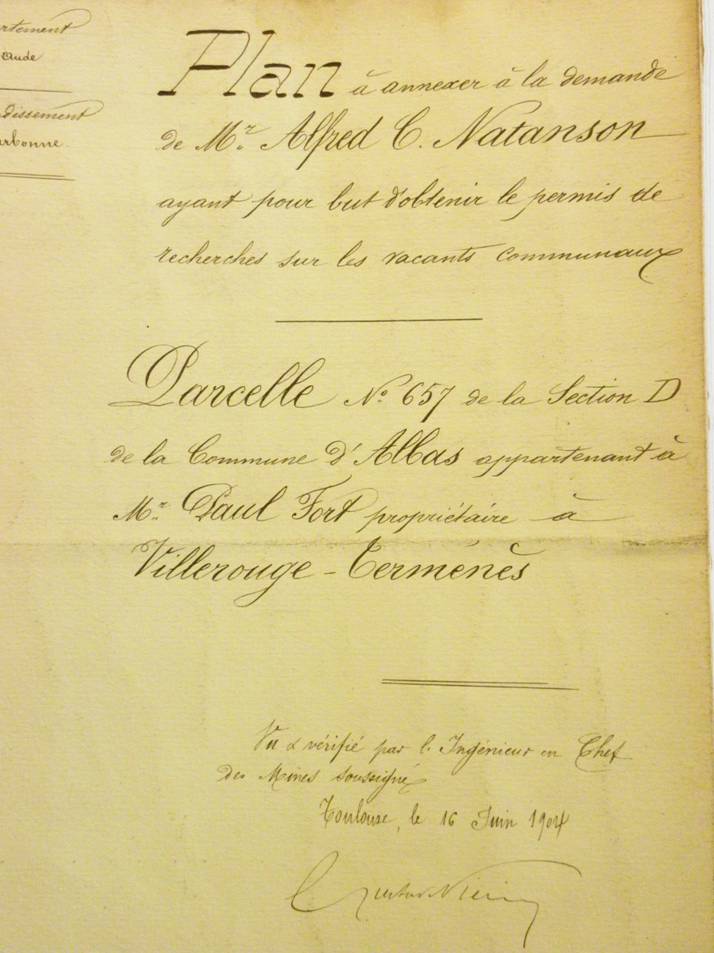 rtement
Aude
dissement
arbonne
Plan à annexer à la demande
de Mr. Alfred C. Natanson
ayant pour but d'obtenir le permis de
recherches sur les vacants communaux
Parcelle No. 657 de la Section D
de la Commune d'Albas appartenant à
Mr. Paul Fort propriétaire à
Villerouge-Terménès
Vu & vérifié par l'Ingénieur en Chef
des Mines soussigné
Toulouse, le 16 Juin 1904